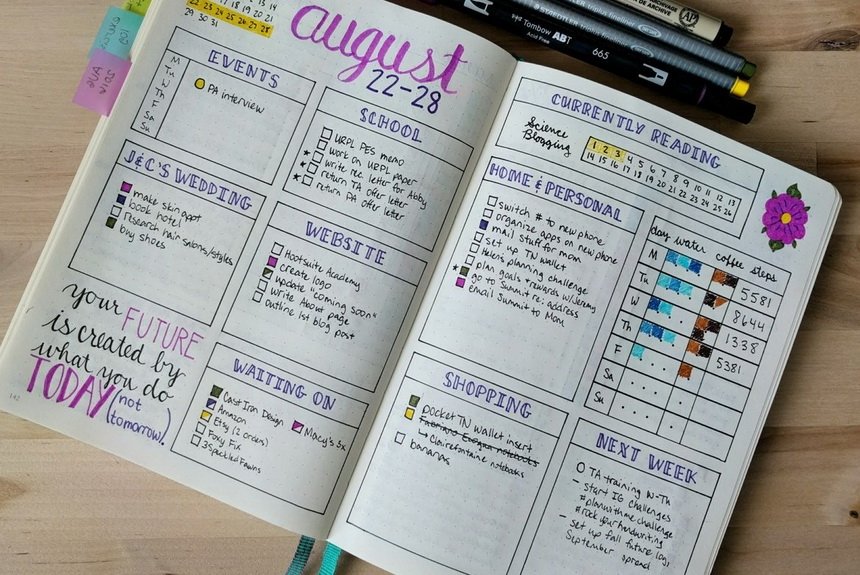 22 23 24 25 26 27 28
29 30 31
august
22-28
EVENTS
M
Tu
W
Th
F
Sa
Su
PA interview
SCHOOL
URPL PES memo
work on URPL paper
write rec. letter for Abby
return TA offer letter
return PA offer letter
J&C'S WEDDING
make skin appt
book hotel
research hair salons/styles
buy shoes
WEBSITE
Hootsuite Academy
create logo
update "coming soon"
write About page
outline 1st blog post
your FUTURE
is created by
what you do
TODAY (not
tomorrow!)
142
WAITING ON
Cast Iron Design
Amazon
Etsy (2 orders)
Foxy Fix
3 Speckled Fawns
Macy's 3x
CURRENTLY READING
Science
Blogging
1 2 3 4 5 6 7 8 9 10 11 12 13
14 15 16 17 18 19 20 21 22 23 24 25 26
HOME & PERSONAL
switch # to new phone
organize apps on new phone
mail stuff for mom
set up TN wallet
Helen's planning challenge
plan goals & rewards w/Jeremy
go to Summit re: address
email Summit to Mom
day water coffee steps
M 5581
Tu 8644
W 1338
Th 5381
F
Sa
Su
SHOPPING
pocket TN wallet insert
Fabriano Ecoqua notebooks
Clairefontaine notebooks
bananas
NEXT WEEK
TA training W-Th
- start IG challenges
#planwithmechallenge
#rockyourhandwriting
- set up fall future log,
September spread
Tombow ABT
Acid Free
665
STAEDTLER triplus fineliner